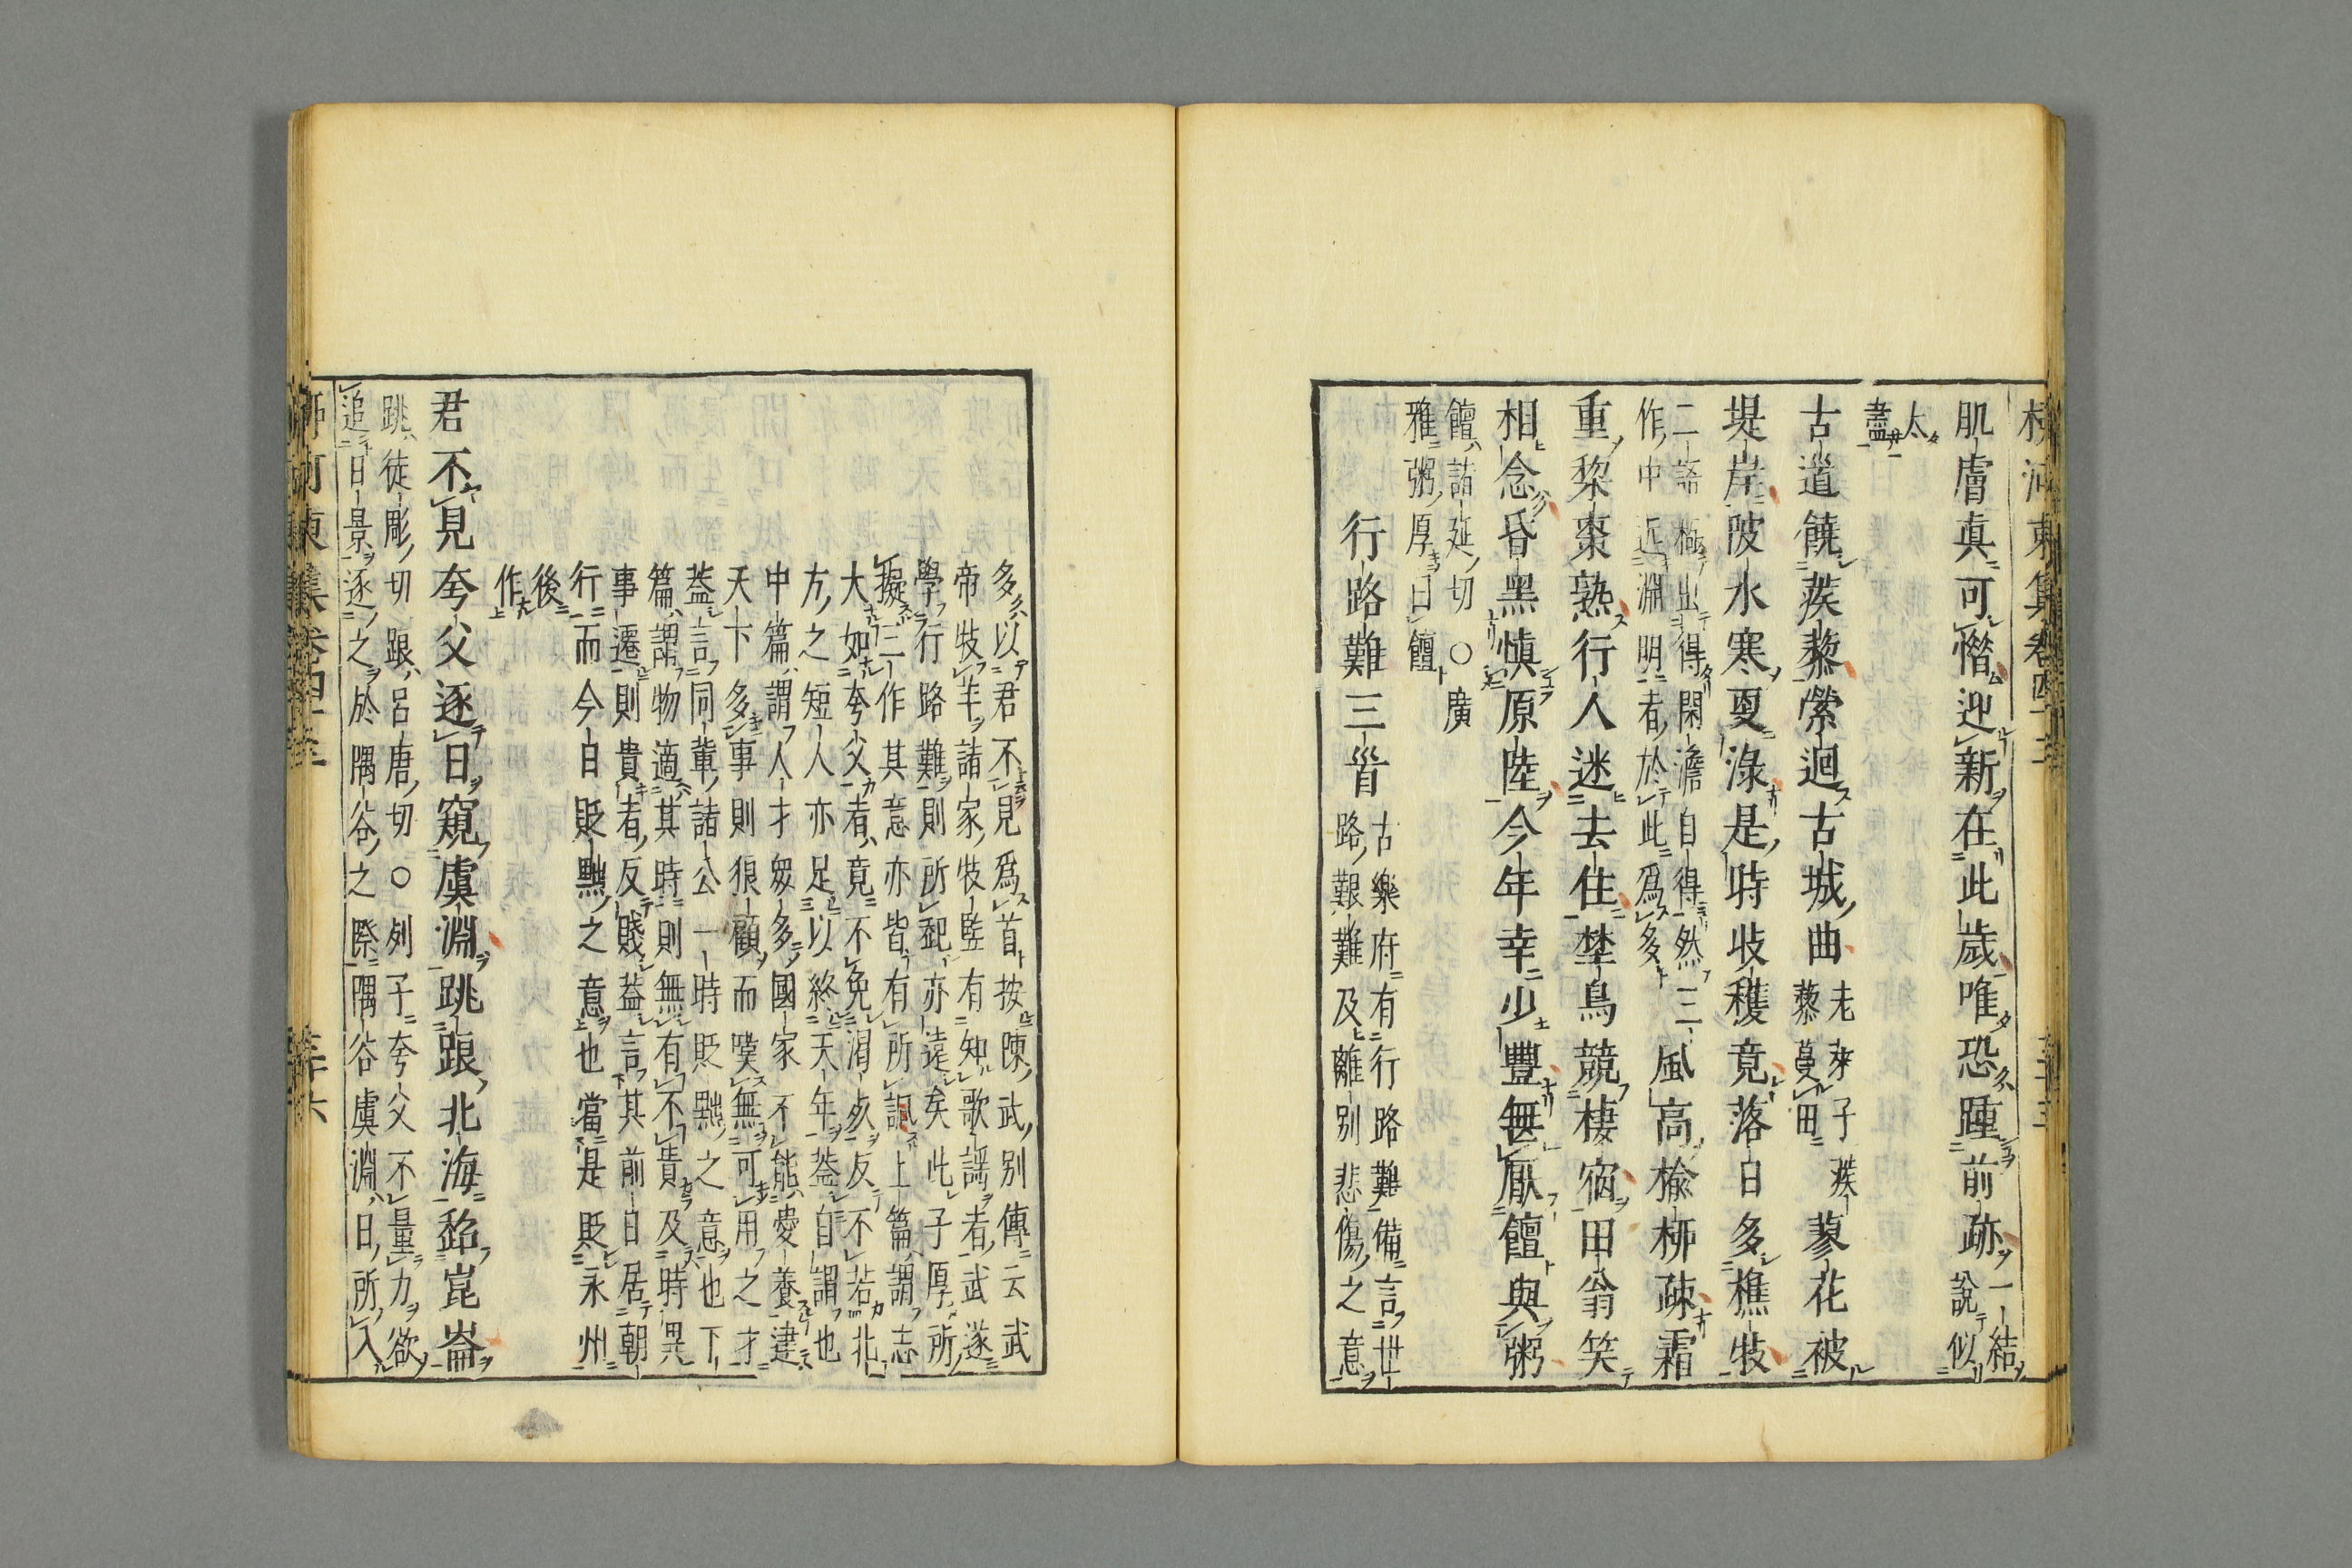 柳河東集卷四十三
肌膚真可惜迎新在此歲唯恐踵前跡
一結
說似
太
盡
古道饒蒺藜縈迴古城曲
老萊子蒺
藜蔓田
蓼花被
堤岸陂水寒更淥是時收穫竟落日多樵牧
二語極出得閑澹自得然三
作中近淵明者於此爲多
風高榆柳疎霜
重梨棗熟行人迷去住野鳥競棲宿田翁笑
相念昏黑慎原陸今年幸少豐無厭饘與粥
饘諸延切○廣
雅粥厚曰饘
行路難三首
古樂府有行路難備言世
路艱難及離别悲傷之意
多以君不見爲首按陳武别傳云武
帝牧羊諸家牧監有知歌謡者武遂
學行路難則所起亦遠矣此子厚所
擬三作其意亦皆有所諷上篇謂志
大如夸父者竟不免渴死反不若北
方之短人亦足以終天年葢自謂也
中篇謂人才衆多國家不能愛養逮
天下多事則狼顧而嘆無可用之才
葢言同輩諸公一時貶黜之意也下
篇謂物適其時則無有不貴及時異
事遷則貴者反賤葢言其前日居朝
行而今日貶黜之意也當是貶永州
後
作
君不見夸父逐日窺虞淵跳踉北海超崑崙
跳徒彫切踉呂唐切○列子夸父不量力欲
追日景逐之於隅谷之際隅谷虞淵日所入
柳河東集卷四十三